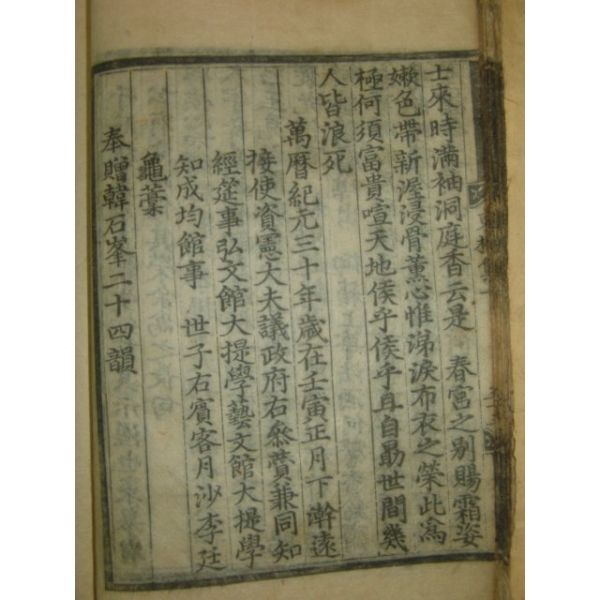 士來時滿袖洞庭香云是 春宮之別賜霜姿
嫩色帶新渥浸骨薰心惟涕淚布衣之榮此爲
極何須富貴喧天地侯乎侯乎且自勗世間幾
人皆浪死
萬曆紀元三十年歲在壬寅正月下澣遠
接使資憲大夫議政府右參贊兼同知
經筵事弘文館大提學藝文館大提學
知成均館事 世子右賓客月沙李廷
龜藁
奉贈韓石峯二十四韻